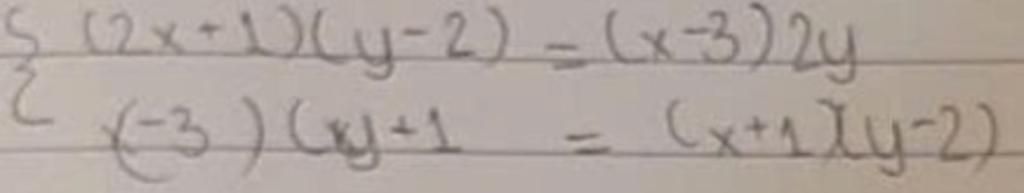 { (2x+1)(y-2) = (x-3)2y
(-3)(xy+1 = (x+1)(y-2)